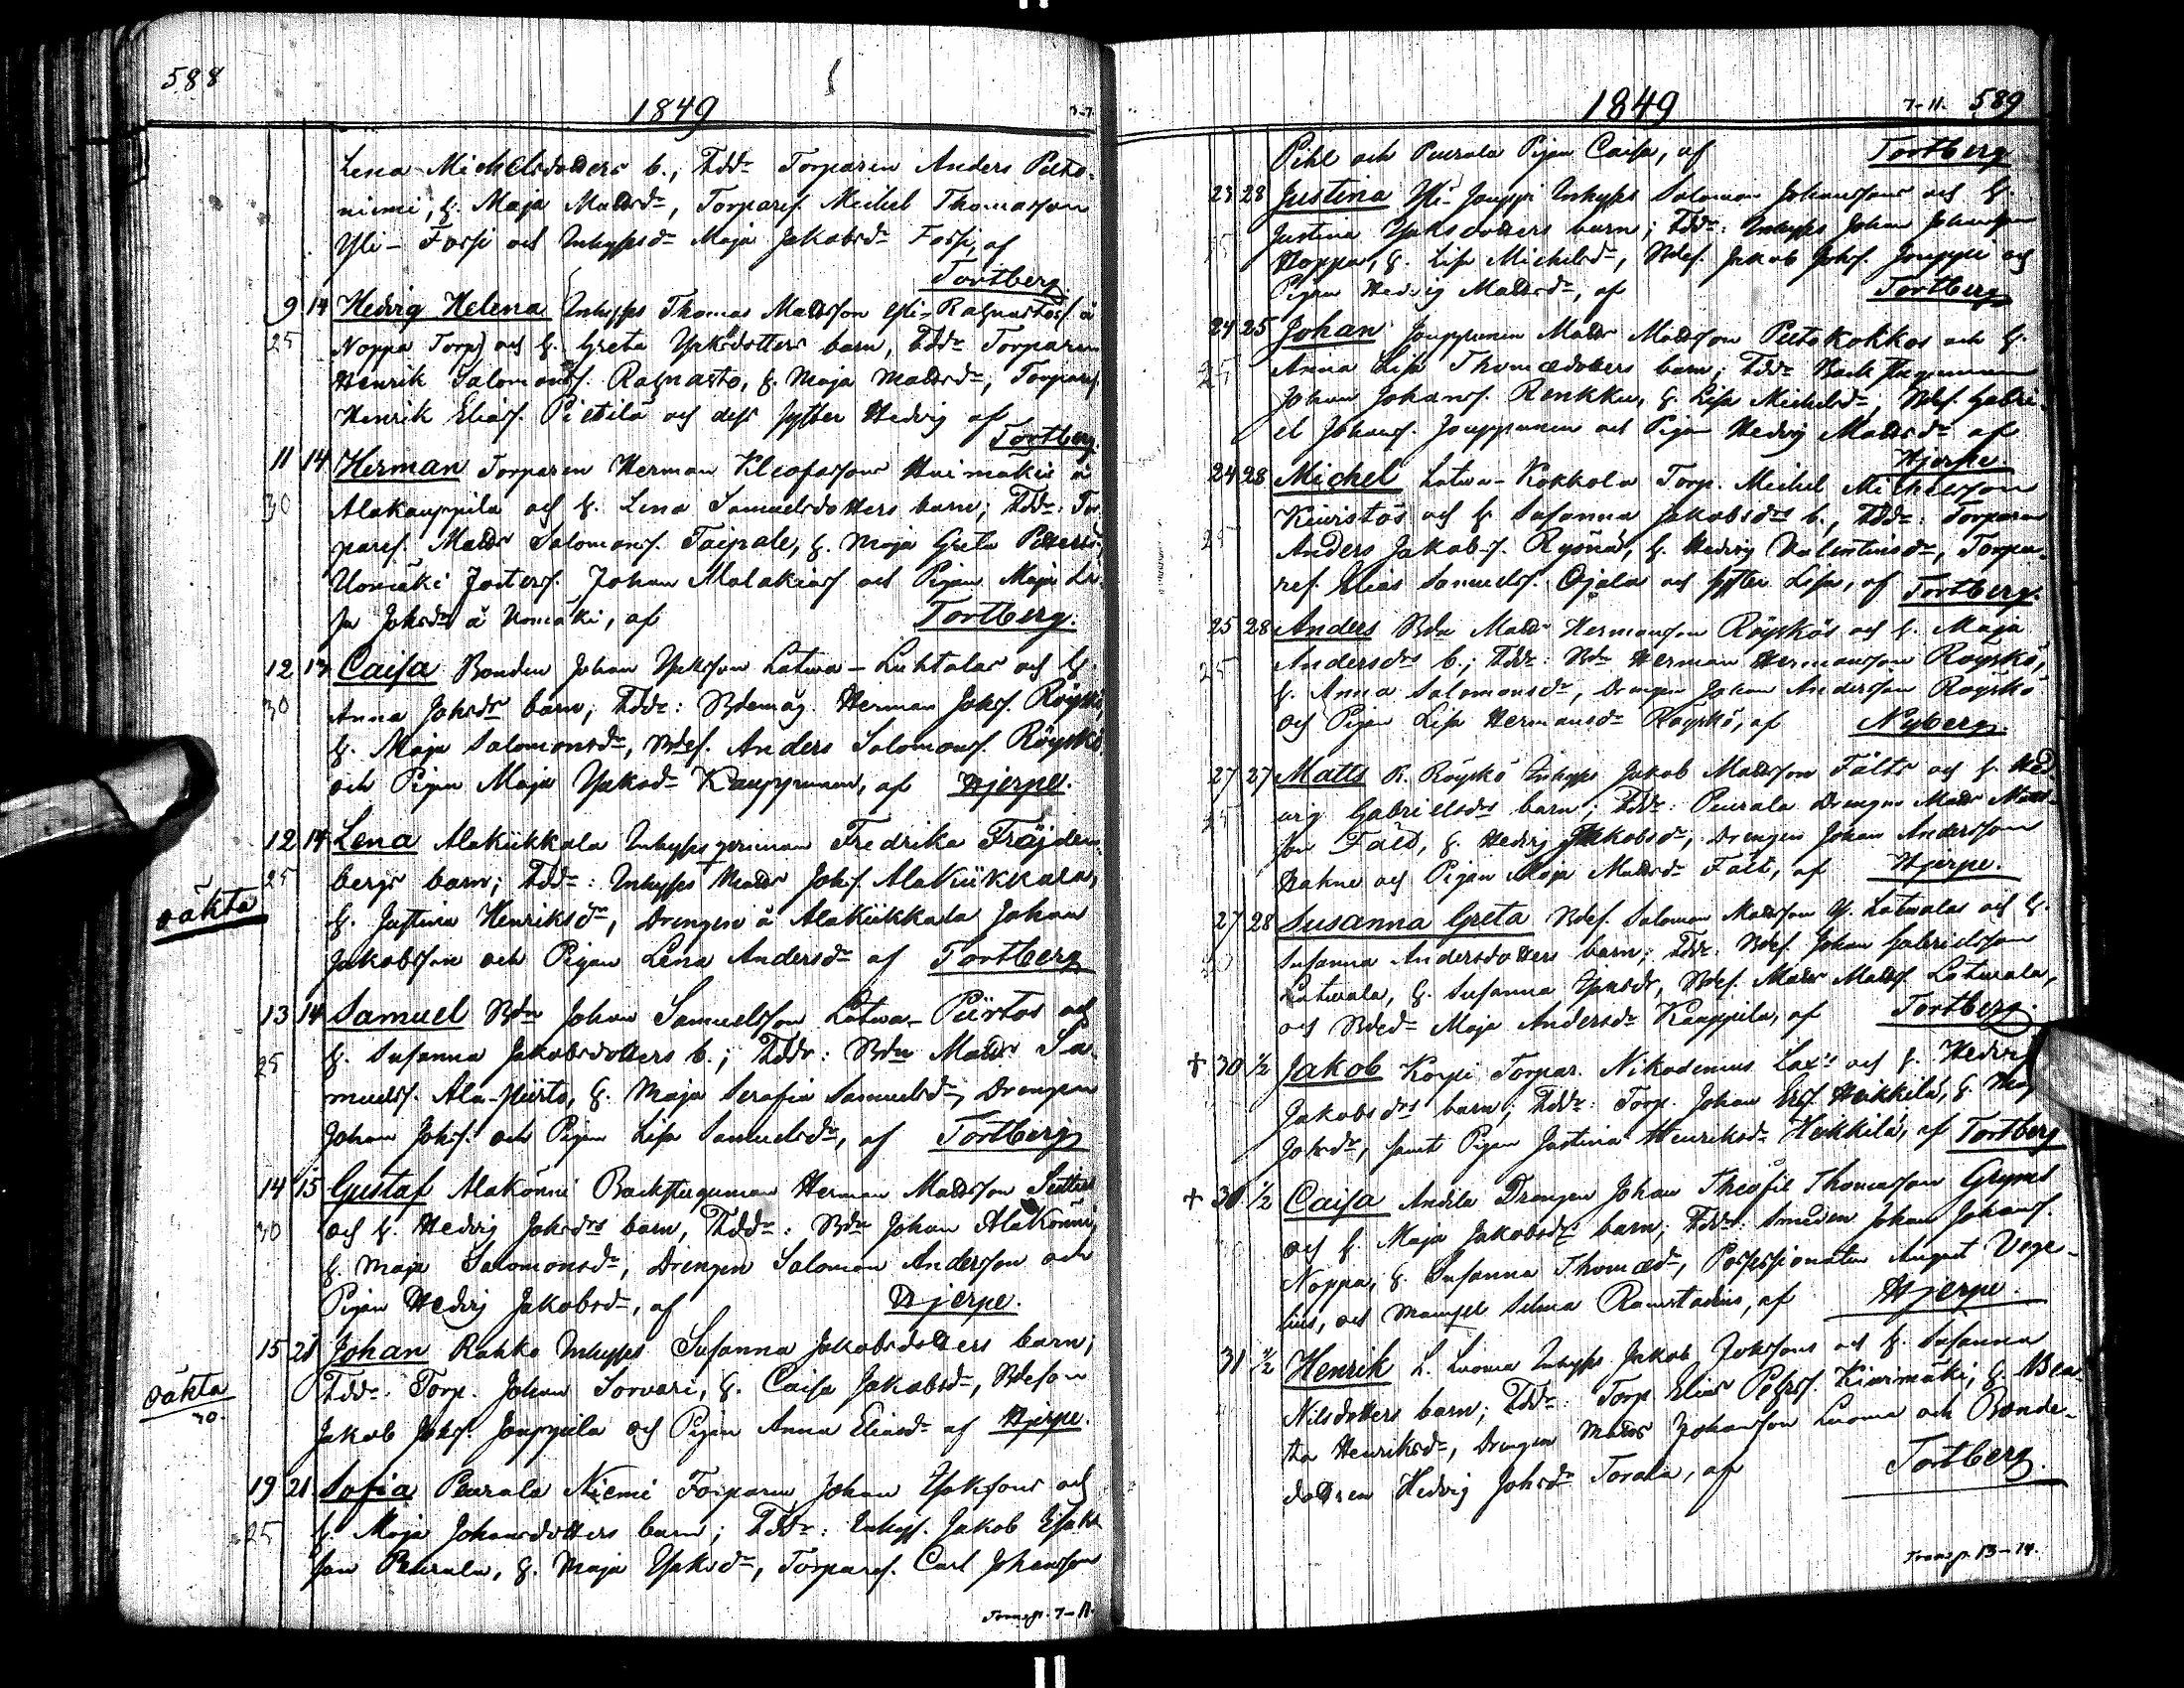 588
1849
7-7
Lena Michelsdotters b.; Fdd: Torparen Anders Pelto-
niemi, h. Maja Mattsdr, Torpares. Michel Thomasson
Yli-Fossi och Inhyses dr Maja Jakobsdr Fossi, af
Tortberg.
9 14 Hedvig Helena Inhyses Thomas Mattsson Yli- Rahnastos å
25 Noppa Torp) och h. Greta Isaksdotters barn, Fdd: Torparen
Henrik Salomonss. Rahnasto, h. Maja Mattsdr, Torpares.
Henrik Eliass. Pietilä och dess syster Hedvig af
Tortberg.
11 14 Herman Torparen Herman Kleofassons Harimäkis å
30 Alakauppila och h. Lena Samuelsdotters barn; Fdd: Tor-
pares. Matts Salomonss. Taipale, h. Maja Greta Pettersd:
Uomäki Josters. Johan Malakiass och Pigan Maja Li-
sa Johsdr å Uomäki, af Tortberg.
12 13 Caisa Bonden Johan Isaksson Latwa-Luhtalas och h.
30 Anna Johsdrs barn; Fdd: Bdemåg. Herman Johs. Röyskö,
h. Maja Salomonsdr, Bdes. Anders Salomonss. Röyskö
och Pigan Maja Isaksdr Kauppinen, af Hjerpe.
12 14 Lena Alakiikkala Inhyses qvinnan Fredrika Fräjden-
25 bergs barn; Fdd: Inhyses Matts Johs. Alakiikkala,
oäkta
h. Justina Henriksdr, Drengen å Alakiikkala Johan
Jakobsson och Pigan Lena Andersdr af Tortberg
13 14 Samuel Bdn Johan Samuelsson Latwa-Piirtos och
25 h. Susanna Jakobsdotters b.; Fdd: Bdn Matts Sa-
muels. Ala-Piirto, h. Maja Serafia Samuelsdr, Drengen
Johan Johs. och Pigan Lisa Samuelsdr, af Tortberg
14 15 Gustaf Alakönni Backstuguman Herman Mattsson
30 och h. Hedvig Johsdrs barn, Fdd: Bdn Johan Alakönni,
h. Maja Salomonsdr, Drengen Salomon Andersson och
Pigan Hedvig Jakobsdr, af Hjerpe.
15 21 Johan Rahko Inhyses Susanna Jakobsdotters barn;
oäkta
30.
Fdd: Torp. Johan Sorvari, h. Caisa Jakobsdr, Bdeson
Jakob Johs. Jouppila och Pigan Anna Eliasdr af Hjerpe.
19 21. Sofia Peurala Niemi Torparen Johan Isakssons och
25 h. Maja Johansdotters barn; Fdd: Inhys. Jakob Isaks-
son Peurala, h. Maja Isaksdr, Torpares. Carl Johansson
Transp. 7-11.
1849
7-11. 589
Pihl och Peurala Pigan Caisa, af Tortberg
23 28 Justina Yli-Jouppi Inhyses Salomon Johanssons och h.
Justina Isaksdotters barn; Fdd: Inhyses Johan Johansson
Hoppa, h. Lisa Michelsdr, Bdes. Jakob Johs. Jouppi och
Pigan Hedvig Mattsdr, af Tortberg
24 25 Johan Jouppinen Matts Mattsson Peltokokkos och h.
25 Anna Lisa Thomædotters barn; Fdd: Backstuguman
Johan Johanss. Renkku, h. Lisa Michelsdr, Bdes. Gabri-
el Johanss. Jouppinen och Pigan Hedvig Mattsdr af
Hjerpe.
24 28 Michel Latwa-Kokkola Torp. Michel Michelsson
Kivistös och h. Susanna Jakobsdrs b., Fdd: Torparen
25 Anders Jakobs. Rysnä, h. Hedvig Valentinsdr, Torpa-
res. Elias Samuels. Ojala och syster Lisa, af Tortberg.
25 28 Anders Bdn Matts Hermansson Röyskös och h. Maja
25 Andersdrs b.; Fdd: Bdn Herman Hermansson Röyskö,
h. Anna Salomonsdr, Drengen Johan Andersson Röyskö
och Pigan Lisa Hermansdr Röyskö, af Nyberg.
27 27 Matts R. Röyskö Inhyses Jakob Mattsson Fälts och h. Hed-
25 vig Gabrielsdrs barn; Fdd: Peurala Drengen Matts Matts-
son Fält, h. Hedvig Jakobsdr, Drengen Johan Andersson
Hahne och Pigan Maja Mattsdr Fält, af Hjerpe.
27 28 Susanna Greta Bdes. Salomon Mattsson Y. Latwalas och h.
Susanna Andersdotters barn; Fdd: Bdes. Johan Gabrielsson
Latwala, h. Susanna Isaksdr, Bdes. Matts Mattss. Latwala,
och Bdedr Maja Andersdr Kauppila, af Tortberg.
+ 30 1/2 Jakob Korpi Torpar. Nikodemus Lax's och h. Hedvig
Jakobsdrs barn; Fdd: Torp. Johan Ers. Heikkilä, h. Maj
Johsdr, samt Pigan Justina Henriksdr Heikkilä, af Tortberg
+ 30. 1/2 Caisa Andila Drengen Johan Theofil Thomasson Gryms
och h. Maja Jakobsdrs barn; Fdd: Smeden Johan Johans.
Noppa, h. Susanna Thomædr, Possessionaten August Vege-
lius, och Mamsel Selma Ramstadius, af Hjerpe.
31 1/2 Henrik L. Luoma Inhyses Jakob Johssons och h. Susanna
Nilsdotters barn; Fdd: Torp. Elias Pehrss. Kivimäki, h. Bea-
ta Henriksdr, Drengen Matts Johansson Luoma och Bonde-
dottren Hedvig Johsdr Torala, af Tortberg.
Transp. 13-14.